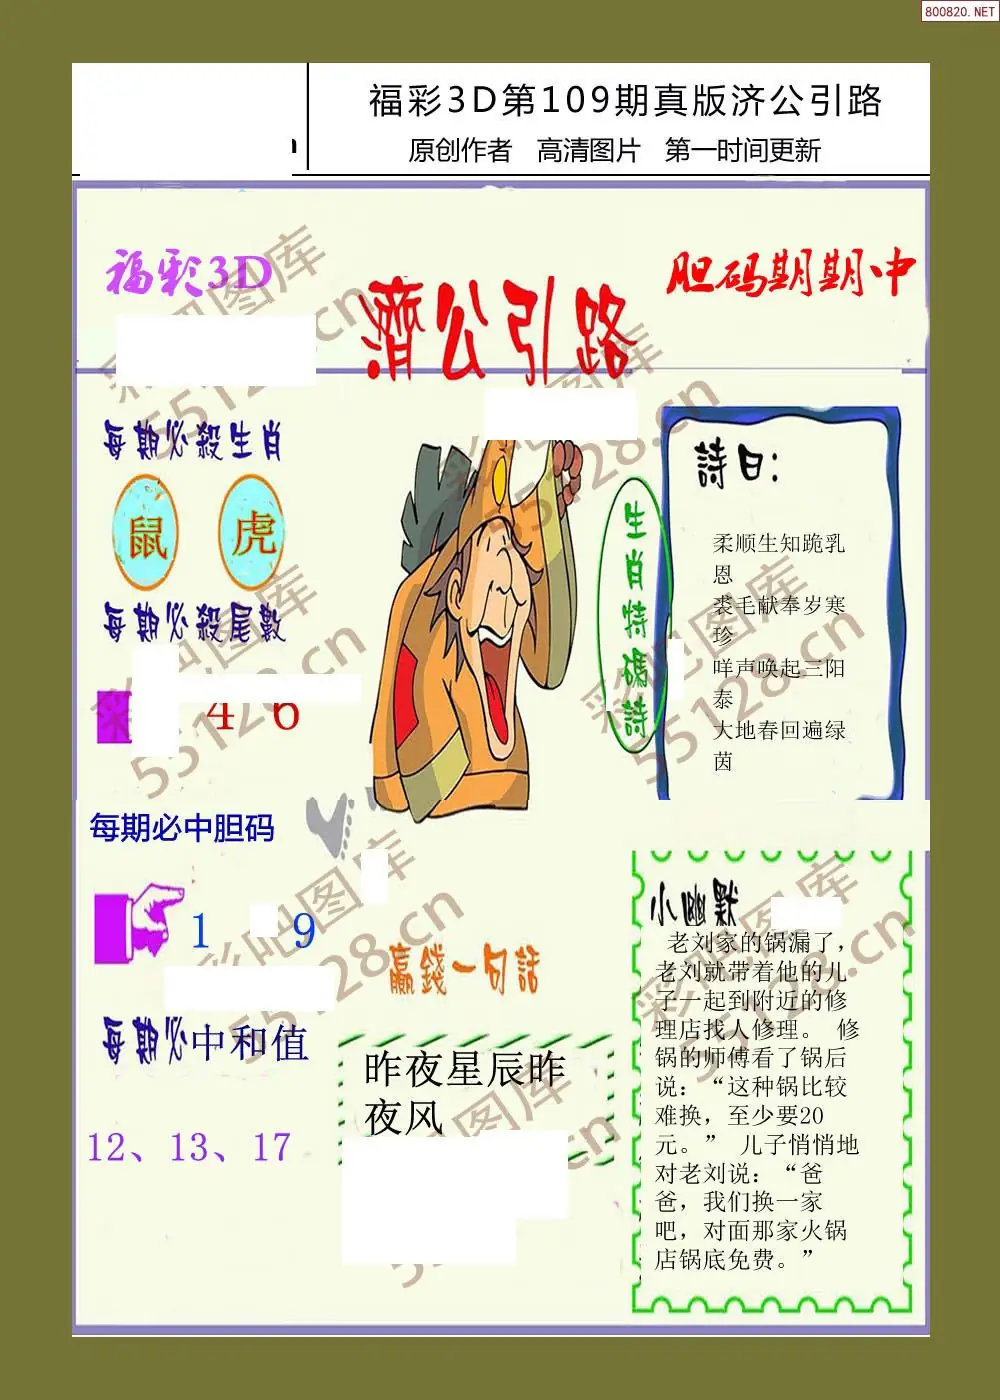 800820.NET
福彩3D第109期真版济公引路
原创作者 高清图片 第一时间更新
福彩3D
胆码期期中
濟公引路
每期必殺生肖
鼠 虎
每期必殺尾數
4 6
每期必中胆码
1 9
每期必中和值
12、13、17
生肖特碼詩
詩曰：
柔顺生知跪乳
恩
裘毛献奉岁寒
珍
咩声唤起三阳
泰
大地春回遍绿
茵
赢錢一句話
昨夜星辰昨
夜风
小幽默
老刘家的锅漏了，
老刘就带着他的儿
子一起到附近的修
理店找人修理。 修
锅的师傅看了锅后
说：“这种锅比较
难换，至少要20
元。” 儿子悄悄地
对老刘说：“爸
爸，我们换一家
吧，对面那家火锅
店锅底免费。”
彩吧图库
55128.cn
彩吧图库
55128.cn
彩吧图库
55128.cn
彩吧图库
55128.cn
彩吧图库
55128.cn
彩吧图库
55128.cn